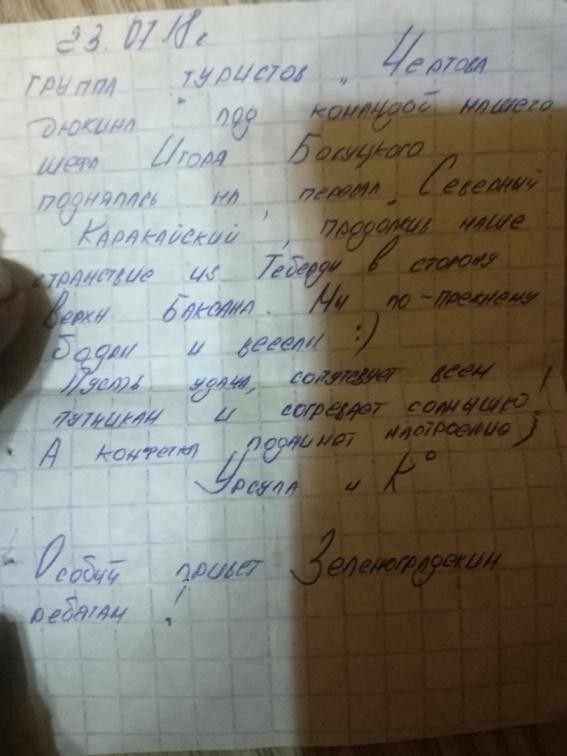 23.07.18 г
группа туристов „Чертова
дюжина" под командой нашего
шефа Игоря Босуцкого
поднялась на перевал „Северный
Каракайский", продолжив наше
странствие из Теберды в сторону
Верхн. Баксана. Мы по-прежнему
бодры и веселы :)
Пусть удача, сопутсвует всем
путникам и согревает солнышко!
А конфетка поднимет настроение)
Урсула и К°
Особый привет Зеленоградским
ребятам!